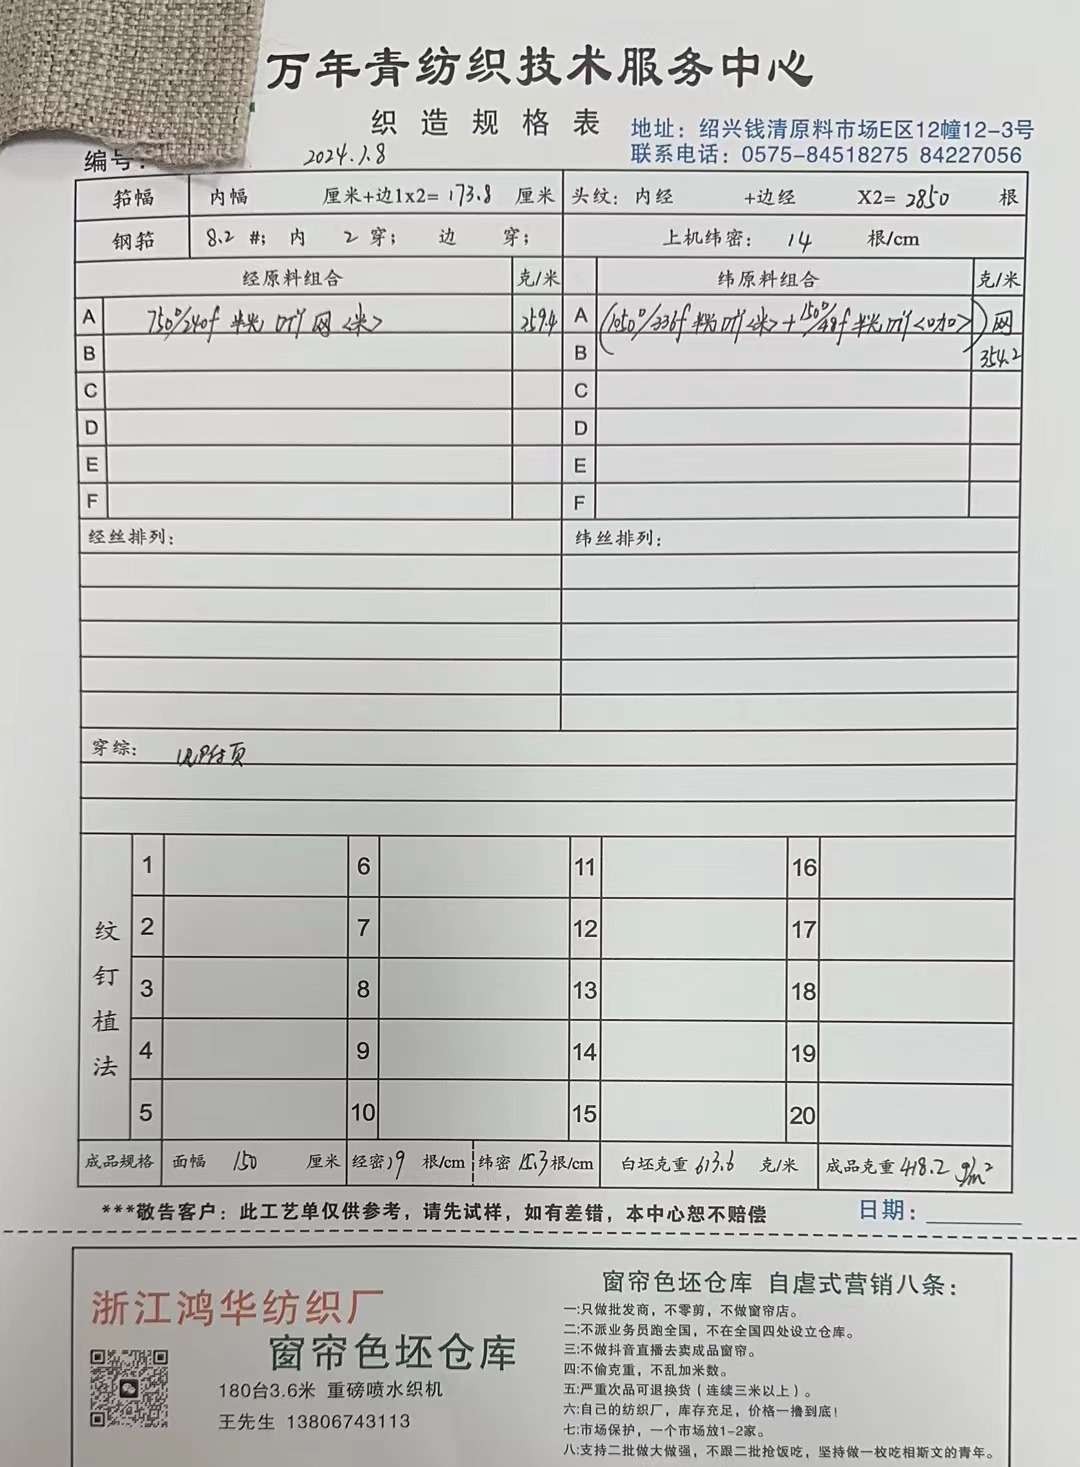 万年青纺织技术服务中心
织造规格表
地址：绍兴钱清原料市场E区12幢12-3号
编号： 2024.1.8
联系电话：0575-84518275 84227056
筘幅 内幅 厘米+边1x2= 173.8 厘米 头纹：内经 +边经 X2= 2850 根
钢筘 8.2 #; 内 2 穿; 边 穿; 上机纬密： 14 根/cm
经原料组合 克/米 纬原料组合 克/米
A 750D/240f 半光 网 <米> 259.4 A (1050D/336f 半光 <米> + 150D/48f 半光 <咖>) 网
B B 354.2
C C
D D
E E
F F
经丝排列： 纬丝排列：
穿综：
纹钉植法
1 6 11 16
2 7 12 17
3 8 13 18
4 9 14 19
5 10 15 20
成品规格 面幅 150 厘米 经密 19 根/cm 纬密 15.3 根/cm 白坯克重 613.6 克/米 成品克重 418.2 g/m²
***敬告客户：此工艺单仅供参考，请先试样，如有差错，本中心恕不赔偿 日期：
浙江鸿华纺织厂
窗帘色坯仓库
180台3.6米 重磅喷水织机
王先生 13806743113
窗帘色坯仓库 自虐式营销八条：
一:只做批发商，不零剪，不做窗帘店。
二:不派业务员跑全国，不在全国四处设立仓库。
三:不做抖音直播去卖成品窗帘。
四:不偷克重，不乱加米数。
五:严重次品可退换货（连续三米以上）。
六:自己的纺织厂，库存充足，价格一撸到底！
七:市场保护，一个市场放1-2家。
八:支持二批做大做强，不跟二批抢饭吃，坚持做一枚吃相斯文的青年。